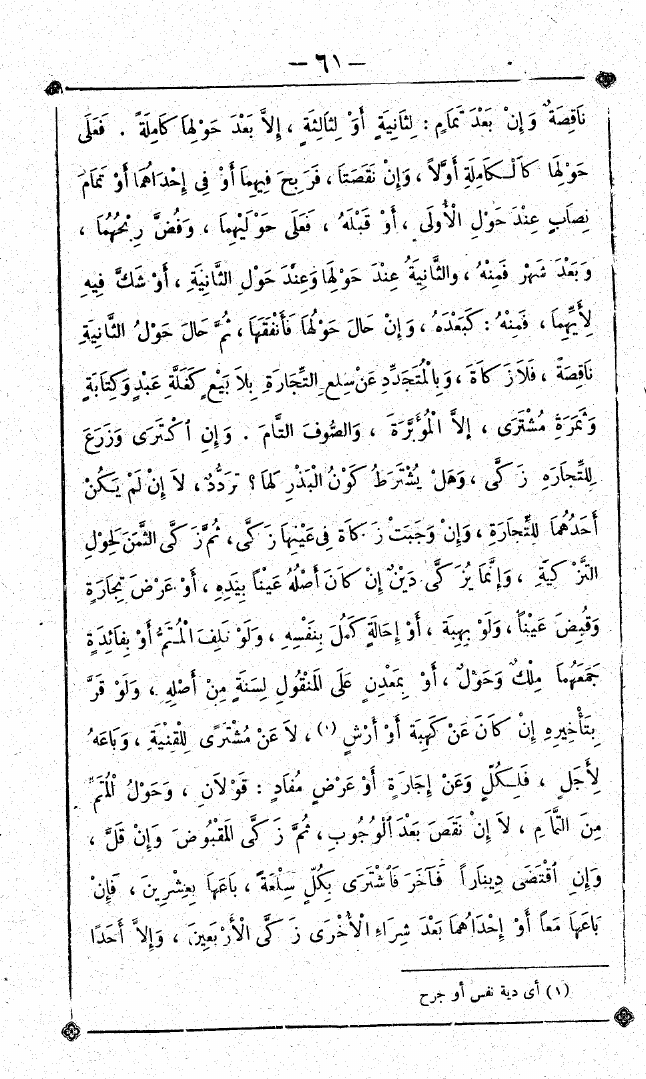 — ٦١ —
نَاقِصَةً وَإِنْ بَعْدَ تَمَامٍ : لِثَانِيَةٍ أَوْ لِثَالِثَةٍ ، إِلاَّ بَعْدَ حَوْلِهَا كَامِلَةً . فَعَلَى
حَوْلِهَا كَالْكَامِلَةِ أَوَّلاً ، وَإِنْ نَقَصَتَا ، فَرَبِحَ فِيهِمَا أَوْ فِى إِحْدَاهُمَا أَوْ تَمَامَ
نِصَابٍ عِنْدَ حَوْلِ الْأُولَى ، أَوْ قَبْلَهُ ، فَعَلَى حَوْلَيْهِمَا ، وَفُضَّ رِبْحُهُمَا ،
وَبَعْدَ شَهْرٍ فَمِنْهُ ، والثَّانِيَةُ عِنْدَ حَوْلِهَا وَعِنْدَ حَوْلِ الثَّانِيَةِ ، أَوْ شَكَّ فِيهِ
لِأَيِّهِمَا ، فَمِنْهُ : كَبَعْدَهُ ، وَإِنْ حَالَ حَوْلُهَا فَأَنْفَقَهَا ، ثُمَّ حَالَ حَوْلُ الثَّانِيَةِ
نَاقِصَةً ، فَلاَ زَكَاةَ ، وَبِالْمُتَجَدِّدِ عَنْ سِلَعِ التِّجَارَةِ بِلاَ بَيْعٍ كَغَلَّةِ عَبْدٍ وَكِتَابَةٍ
وَثَمَرَةِ مُشْتَرًى ، إِلاَّ الْمُؤَبَّرَةَ ، وَالصُّوفَ التَّامَّ . وَإِنِ اكْتَرَى وَزَرَعَ
لِلتِّجَارَةِ زَكَّى ، وَهَلْ يُشْتَرَطُ كَوْنُ الْبَذْرِ لَهَا ؟ تَرَدُّدٌ ، لاَ إِنْ لَمْ يَكُنْ
أَحَدُهُمَا لِلتِّجَارَةِ ، وَإِنْ وَجَبَتْ زَكَاةٌ فِى عَيْنِهَا زَكَّى ، ثُمَّ زَكَّى الثَّمَنَ لِحَوْلِ
التَّزْكِيَةِ ، وَإِنَّمَا يُزَكَّى دَيْنٌ إِنْ كَانَ أَصْلُهُ عَيْناً بِيَدِهِ ، أَوْ عَرْضَ تِجَارَةٍ
وَقُبِضَ عَيْناً ، وَلَوْ بِهِبَةٍ ، أَوْ إِحَالَةٍ كَمُلَ بِنَفْسِهِ ، وَلَوْ تَلِفَ الْمُتَمُّ أَوْ بِفَائِدَةٍ
جَمَعَهُمَا مِلْكٌ وَحَوْلٌ ، أَوْ بِمَعْدِنٍ عَلَى الْمَنْقُولِ لِسَنَةٍ مِنْ أَصْلِهِ ، وَلَوْ فَرَّ
بِتَأْخِيرِهِ إِنْ كَانَ عَنْ كَهِبَةٍ أَوْ أَرْشٍ (١) ، لاَ عَنْ مُشْتَرًى لِلْقِنْيَةِ ، وَبَاعَهُ
لِأَجَلٍ ، فَلِكُلٍّ وَعَنْ إِجَارَةٍ أَوْ عَرْضٍ مُفَادٍ : قَوْلاَنِ ، وَحَوْلُ الْمُتَمِّ
مِنَ التَّمَامِ ، لاَ إِنْ نَقَصَ بَعْدَ الْوُجُوبِ ، ثُمَّ زَكَّى الْمَقْبُوضَ وَإِنْ قَلَّ ،
وَإِنِ اقْتَضَى دِينَاراً فَآخَرَ فَاشْتَرَى بِكُلٍّ سِلْعَةً ، بَاعَهَا بِعِشْرِينَ ، فَإِنْ
بَاعَهَا مَعاً أَوْ إِحْدَاهُمَا بَعْدَ شِرَاءِ الْأُخْرَى زَكَّى الْأَرْبَعِينَ ، وَإِلاَّ أَحَدًا
(١) أى دية نفس أو جرح